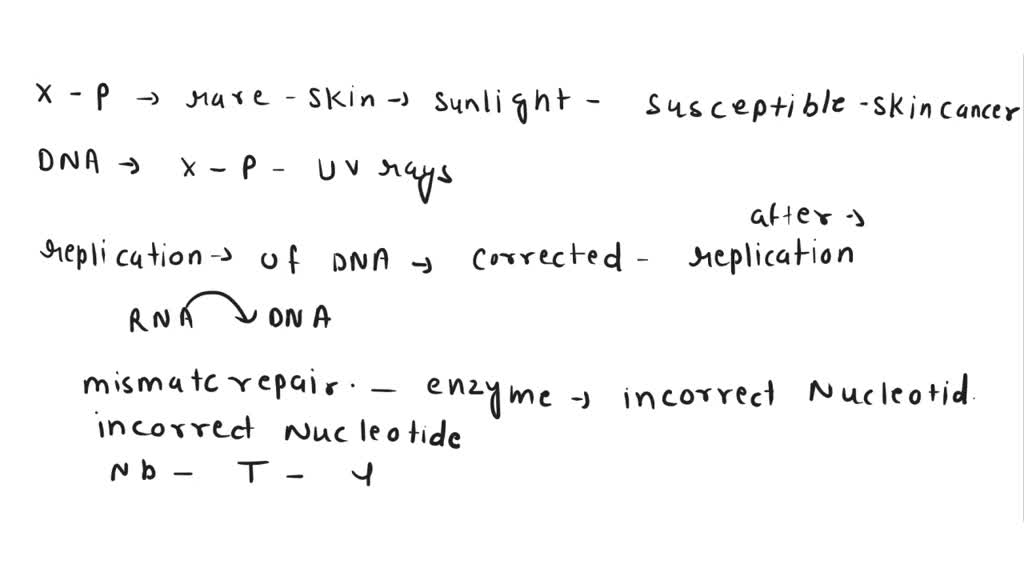 X - P → rare - skin → sunlight - susceptible - skin cancer
DNA → X - P - UV rays
after →
replication → of DNA → corrected - replication
RNA DNA
mismatc repair. - enzyme → incorrect Nucleotid.
incorrect Nucleotide
Nb - T - 4